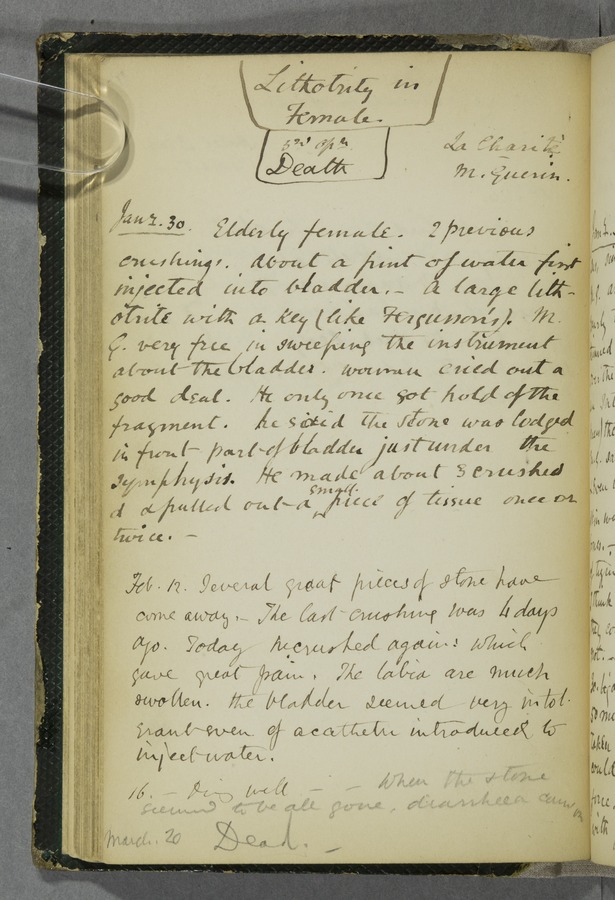 Lithotrity in
Female.
Death
La Charité
M. Guerin.
Jany. 30. Elderly female. 2 previous
crushings. About a pint of water first
injected into bladder. - A large lith-
otrite with a key (like Fergusson's). M.
G. very free in sweeping the instrument
about the bladder. woman cried out a
good deal. He only once got hold of the
fragment. he said the stone was lodged
in front part of bladder just under the
symphysis. He made about 3 crushes
& pulled out a small piece of tissue once or
twice. -
Feb. 12. Several great pieces of stone have
come away. - The last crushing was 4 days
ago. Today he crushed again: which
gave great pain. The labia are much
swollen. the bladder seemed very intol-
erant even of a catheter introduced to
inject water.
16. - Doing well - - When the stone
seemed to be all gone, diarrhoea came on
March. 20 Dead. -